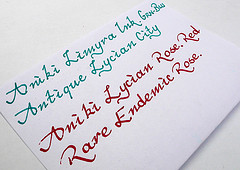 Aniki Limyra Ink Grn-Blu
Antique Lycian City
Aniki Lycian Rose. Red
Rare Endemic Rose.